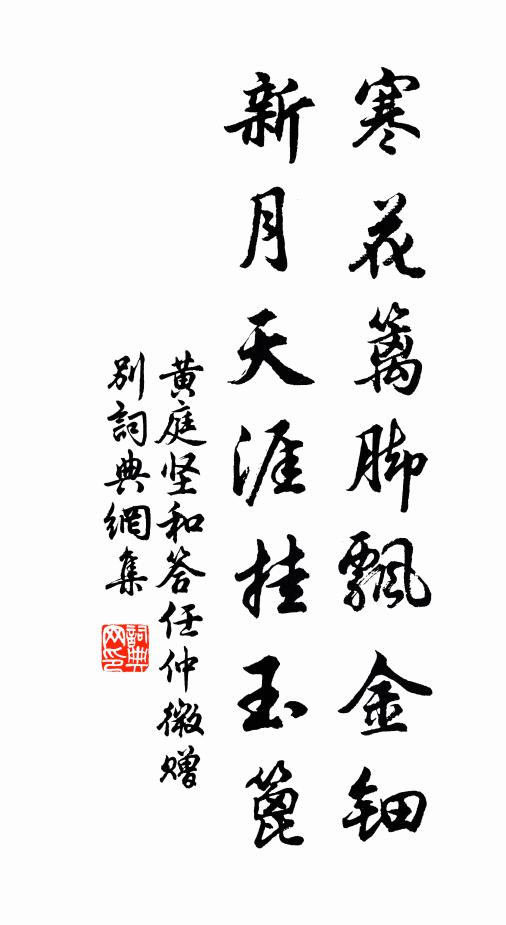 寒花篱脚飄金钿
新月天涯挂玉篦
黄庭坚和答任仲微赠
别詞典網集
詞典网印